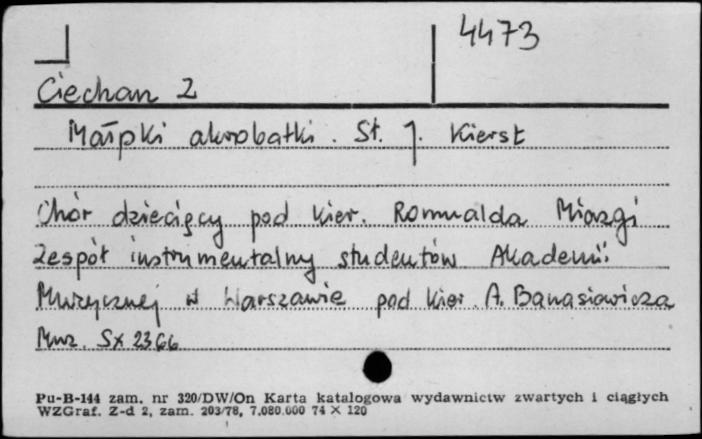 4473
Ciechan Z
Małpki akrobatki. Sł. J. Kierst
Chór dziecięcy pod kier. Romualda Miazgi
Zespół instrumentalny studentów Akademii
Muzycznej w Warszawie pod kier. A. Banasiewicza
Muz. Sx 2366
Pu-B-144 zam. nr 320/DW/On Karta katalogowa wydawnictw zwartych i ciągłych
WZGraf. Z-d 2, zam. 203/78, 7.080.000 74 × 120